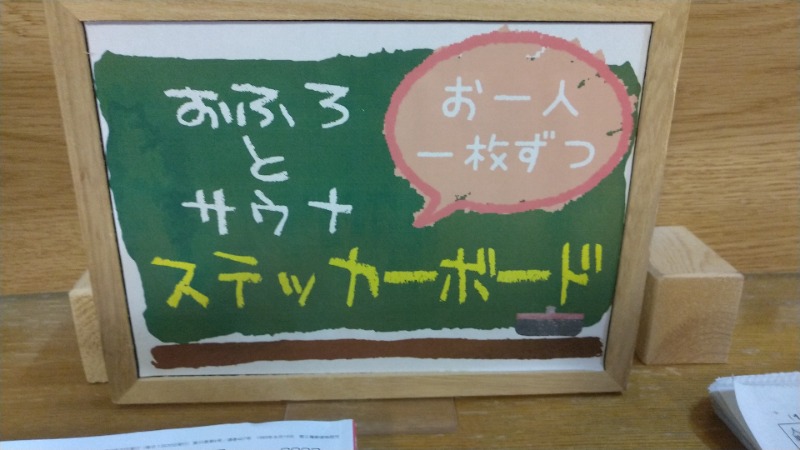 おふろ
と
サウナ
お一人
一枚ずつ
ステッカーボード